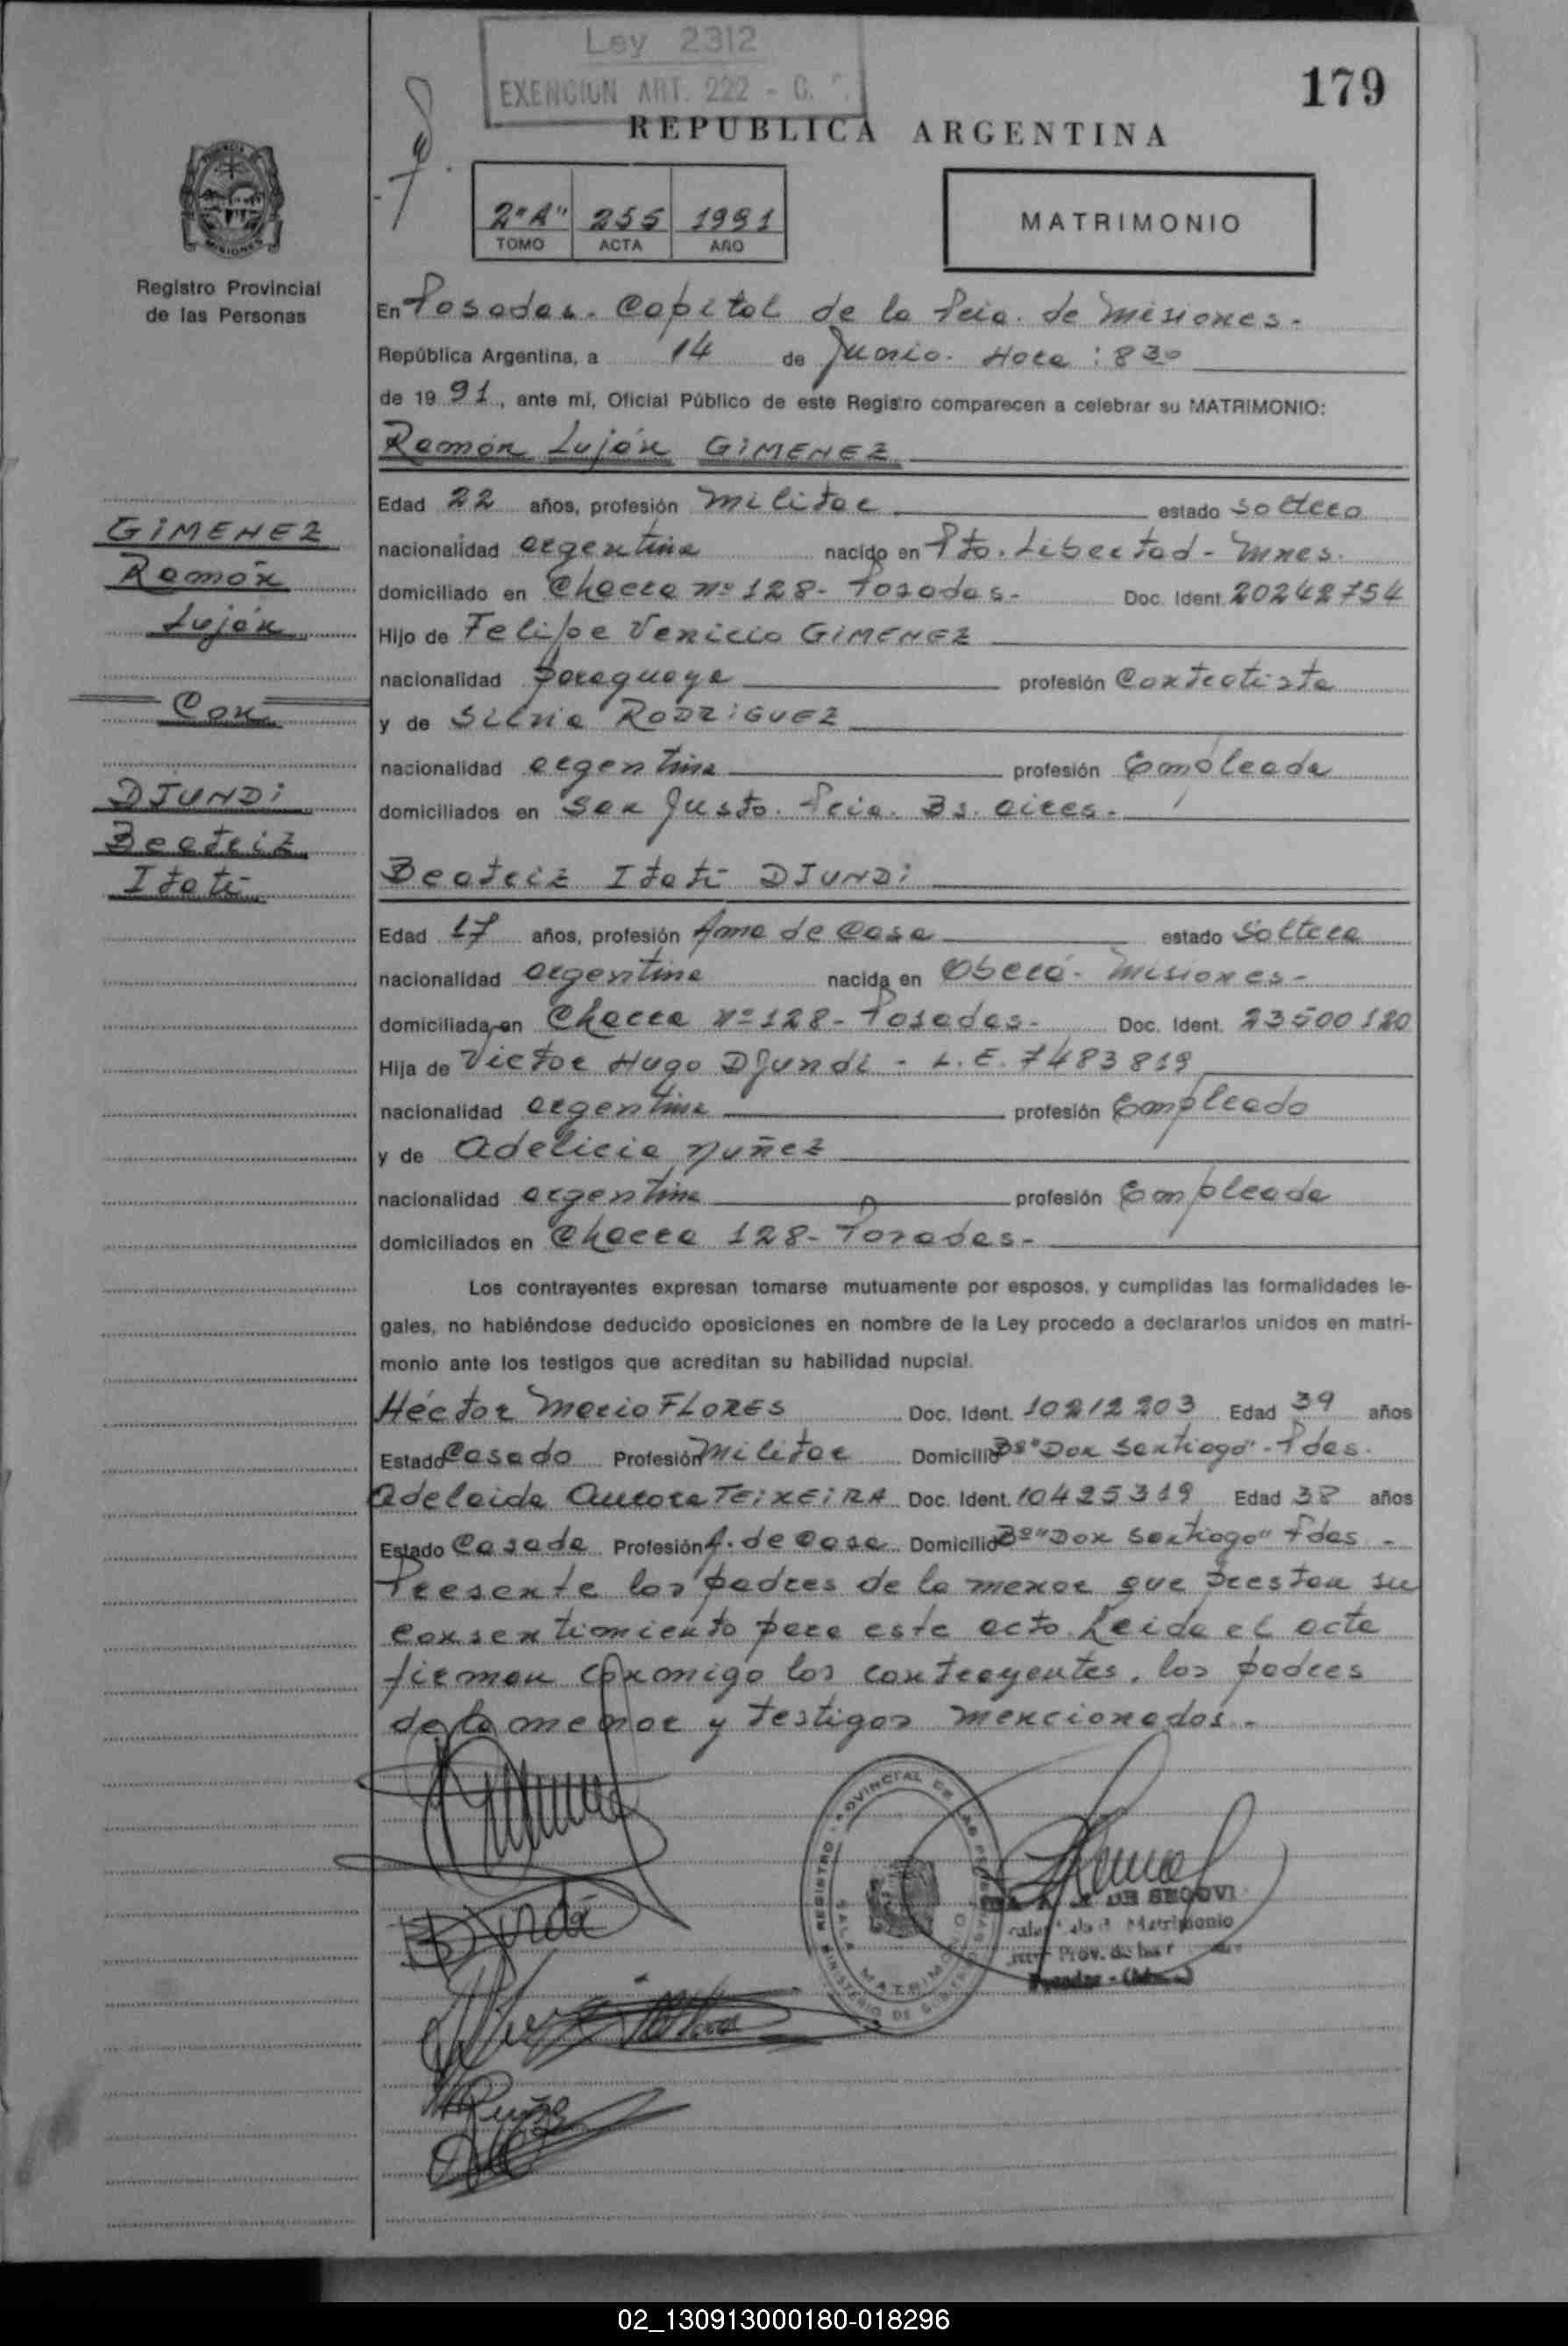 Ley 2312
EXENCION ART. 222 - C.
179
REPUBLICA ARGENTINA
PROVINCIA
MISIONES
Registro Provincial
de las Personas
2"A" 255 1991
TOMO ACTA AÑO
MATRIMONIO
En Posadas - Capital de la Pcia. de Misiones -
República Argentina, a 14 de Junio. Hora : 8 30
de 19 91, ante mí, Oficial Público de este Registro comparecen a celebrar su MATRIMONIO:
Ramón Luján GIMENEZ
Edad 22 años, profesión Militar estado Soltero
nacionalidad argentina nacido en Pto. Libertad - Mnes.
domiciliado en Chacra nº 128 - Posadas - Doc. Ident. 20242754
Hijo de Felipe Venicio GIMENEZ
nacionalidad paraguaya profesión Contratista
y de Silvia RODRIGUEZ
nacionalidad argentina profesión Empleada
domiciliados en San Justo. Pcia. Bs. aires -
GIMENEZ
Ramón
Luján
Con
DJUNDI
Beatriz
Itatí
Beatriz Itatí DJUNDI
Edad 17 años, profesión Ama de Casa estado Soltera
nacionalidad argentina nacida en Oberá - Misiones -
domiciliada en Chacra Nº 128 - Posadas - Doc. Ident. 23500120
Hija de Victor Hugo Djundi - L. E. 7483819
nacionalidad argentina profesión Empleado
y de Adelicia Nuñez
nacionalidad argentina profesión Empleada
domiciliados en Chacra 128 - Posadas -
Los contrayentes expresan tomarse mutuamente por esposos, y cumplidas las formalidades le-
gales, no habiéndose deducido oposiciones en nombre de la Ley procedo a declararlos unidos en matri-
monio ante los testigos que acreditan su habilidad nupcial.
Héctor Mario FLORES Doc. Ident. 10212203 Edad 39 años
Estado Casado Profesión Militar Domicilio Bº "Don Santiago" - Pdas.
Adelaida Aurora TEIXEIRA Doc. Ident. 10425319 Edad 38 años
Estado Casada Profesión A. de Casa Domicilio Bº "Don Santiago" Pdas -
Presente los padres de la menor que prestan su
consentimiento para este acto. Leida el acta
firman conmigo los contrayentes, los padres
de la menor y testigos mencionados -
REGISTRO PROVINCIAL DE LAS PERSONAS
SALA MATRIMONIO
MINISTERIO DE
DE SEGOVI
Matrimonio
Prov. de las
Posadas -
02_130913000180-018296